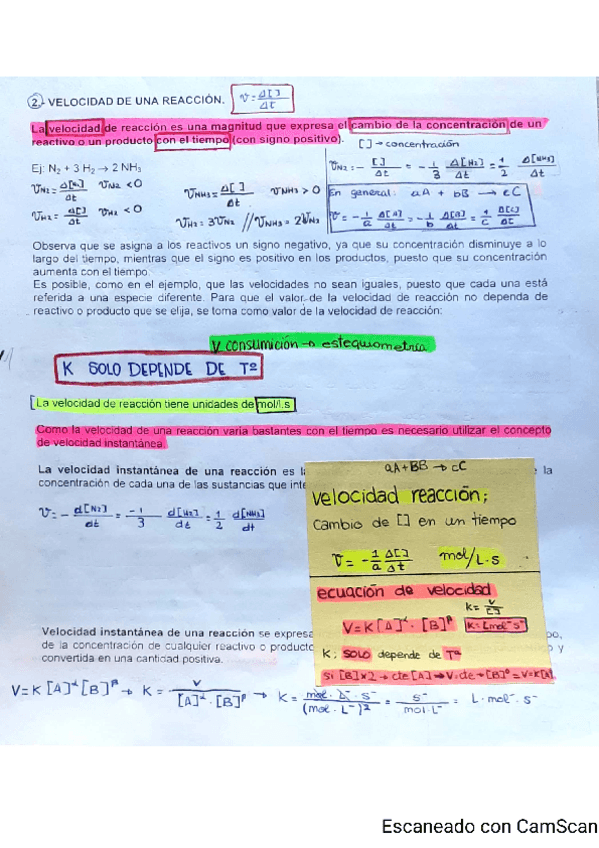 2.- VELOCIDAD DE UNA REACCIÓN. v = Δ[ ]/Δt
La velocidad de reacción es una magnitud que expresa el cambio de la concentración de un
reactivo o un producto con el tiempo (con signo positivo). [ ] → concentración
Ej: N₂ + 3 H₂ → 2 NH₃
V_N₂ = Δ[N₂]/Δt V_N₂ < 0
V_H₂ = Δ[ ]/Δt V_H₂ < 0
V_NH₃ = Δ[ ]/Δt V_NH₃ > 0
V_H₂ = 3V_N₂ // V_NH₃ = 2V_N₂
V_N₂ = - [ ]/Δt = - 1/3 Δ[H₂]/Δt = 1/2 Δ[NH₃]/Δt
En general: aA + bB → cC
V = - 1/a Δ[A]/Δt = - 1/b Δ[B]/Δt = 1/c Δ[C]/Δt
Observa que se asigna a los reactivos un signo negativo, ya que su concentración disminuye a lo
largo del tiempo, mientras que el signo es positivo en los productos, puesto que su concentración
aumenta con el tiempo.
Es posible, como en el ejemplo, que las velocidades no sean iguales, puesto que cada una está
referida a una especie diferente. Para que el valor de la velocidad de reacción no dependa de
reactivo o producto que se elija, se toma como valor de la velocidad de reacción:
V consumición → estequiometría
K SOLO DEPENDE DE Tª
La velocidad de reacción tiene unidades de mol/l.s
Como la velocidad de una reacción varia bastantes con el tiempo es necesario utilizar el concepto
de velocidad instantánea.
La velocidad instantánea de una reacción es la
concentración de cada una de las sustancias que inte
V = - d[N₂]/dt = -1/3 d[H₂]/dt = 1/2 d[NH₃]/dt
aA + BB → cC
velocidad reacción;
cambio de [ ] en un tiempo
V = - 1/a Δ[ ]/Δt mol/L·s
ecuación de velocidad
K = V/[ ]
V = K [A]^α · [B]^β
K: solo depende de Tª
Velocidad instantánea de una reacción se expresa
de la concentración de cualquier reactivo o producto
convertida en una cantidad positiva.
V = K [A]^α [B]^β → K = V/([A]^α · [B]^β) → K = mol · L⁻ · s⁻/(mol · L⁻)² = s⁻/mol·L⁻ = L · mol⁻ · s⁻
Escaneado con CamScan